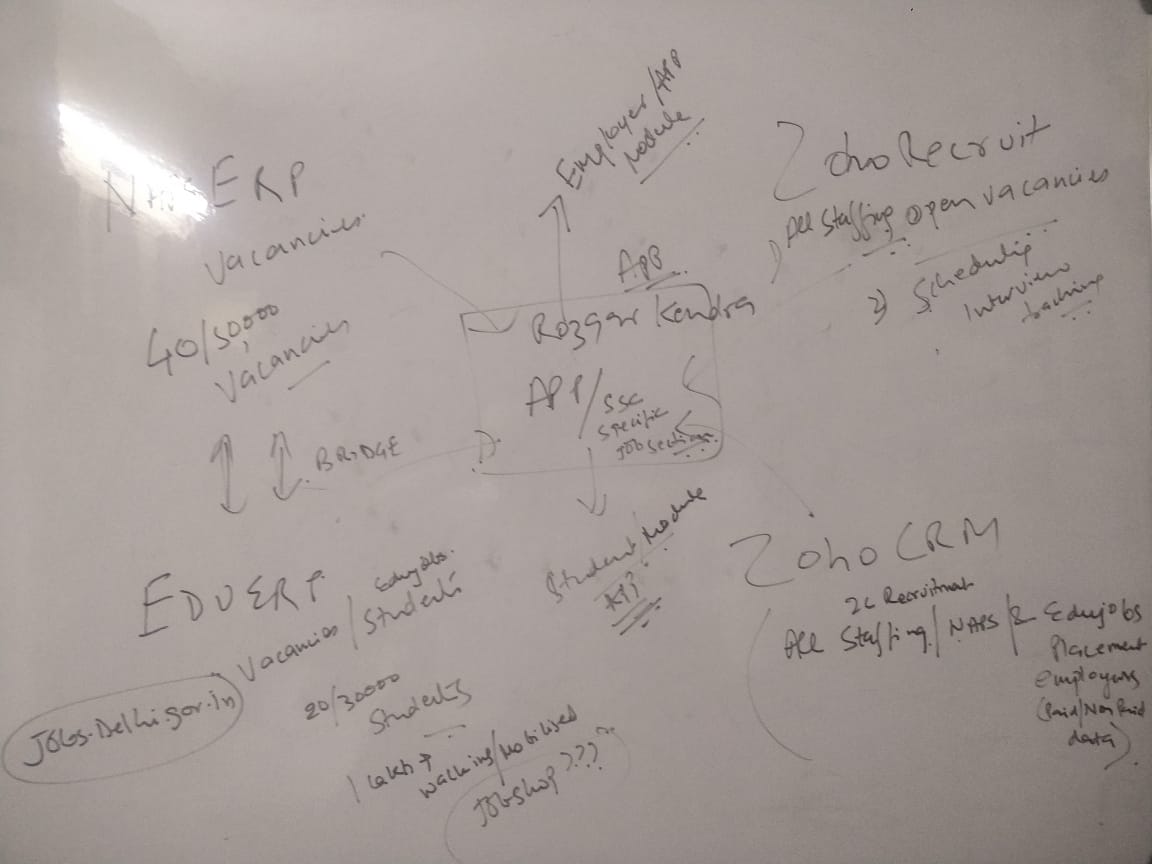 ERP
Vacancies
40/50000
Vacancies
BRIDGE
EDUERP
Vacancies / Edujobs.
Students
Jobs.Delhi.gov.in
20/30000
Students
1 Lakh+
walking/Mobilised
Jobshop???
Employer/APP
Module
App
Rozgar Kendra
API/
SSC
Specific
Job section
Student Module
Zoho Recruit
All Staffing open vacancies
2) Scheduling
Interview
Zoho CRM
Recruitment
All Staffing/NAPS/& Edujobs
Placement
employers
(Paid/Non Paid
data).